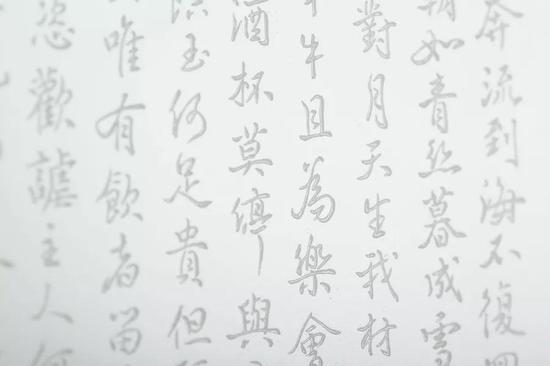 奔流到海不復
朝如青絲暮成雪
對月天生我材
牛且為樂會
酒杯莫停與
玉何足貴但
唯有飲者留
恣歡謔主人何